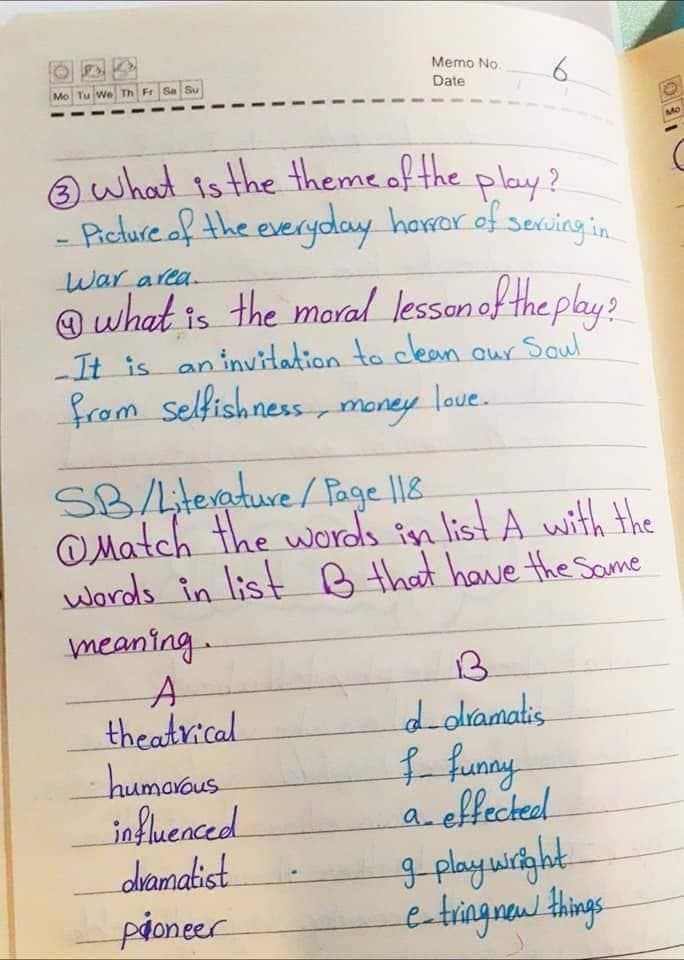 Memo No. 6
Mo Tu We Th Fr Sa Su
Date
Mo
③ What is the theme of the play?
- Picture of the everyday horror of serving in
war area.
④ what is the moral lesson of the play?
- It is an invitation to clean our Soul
from selfishness, money love.
SB/Literature/Page 118
① Match the words in list A with the
words in list B that have the same
meaning.
A B
theatrical d- dramatis
humorous f- funny
influenced a- effected
dramatist g- playwright
pioneer e- tring new things